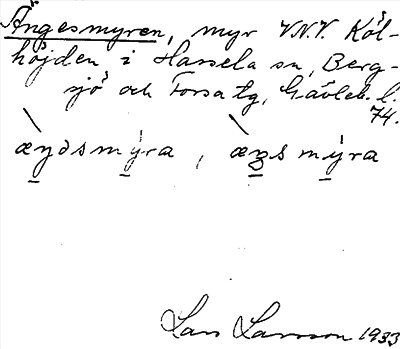 Ängesmyren, myr V.N.V. Köl-
höjden i Hassela sn, Berg-
sjö och Forsa tg, Gävleb. l.
74.
æŋəsmýra, æŋsmýra
Lars Larsson 1933